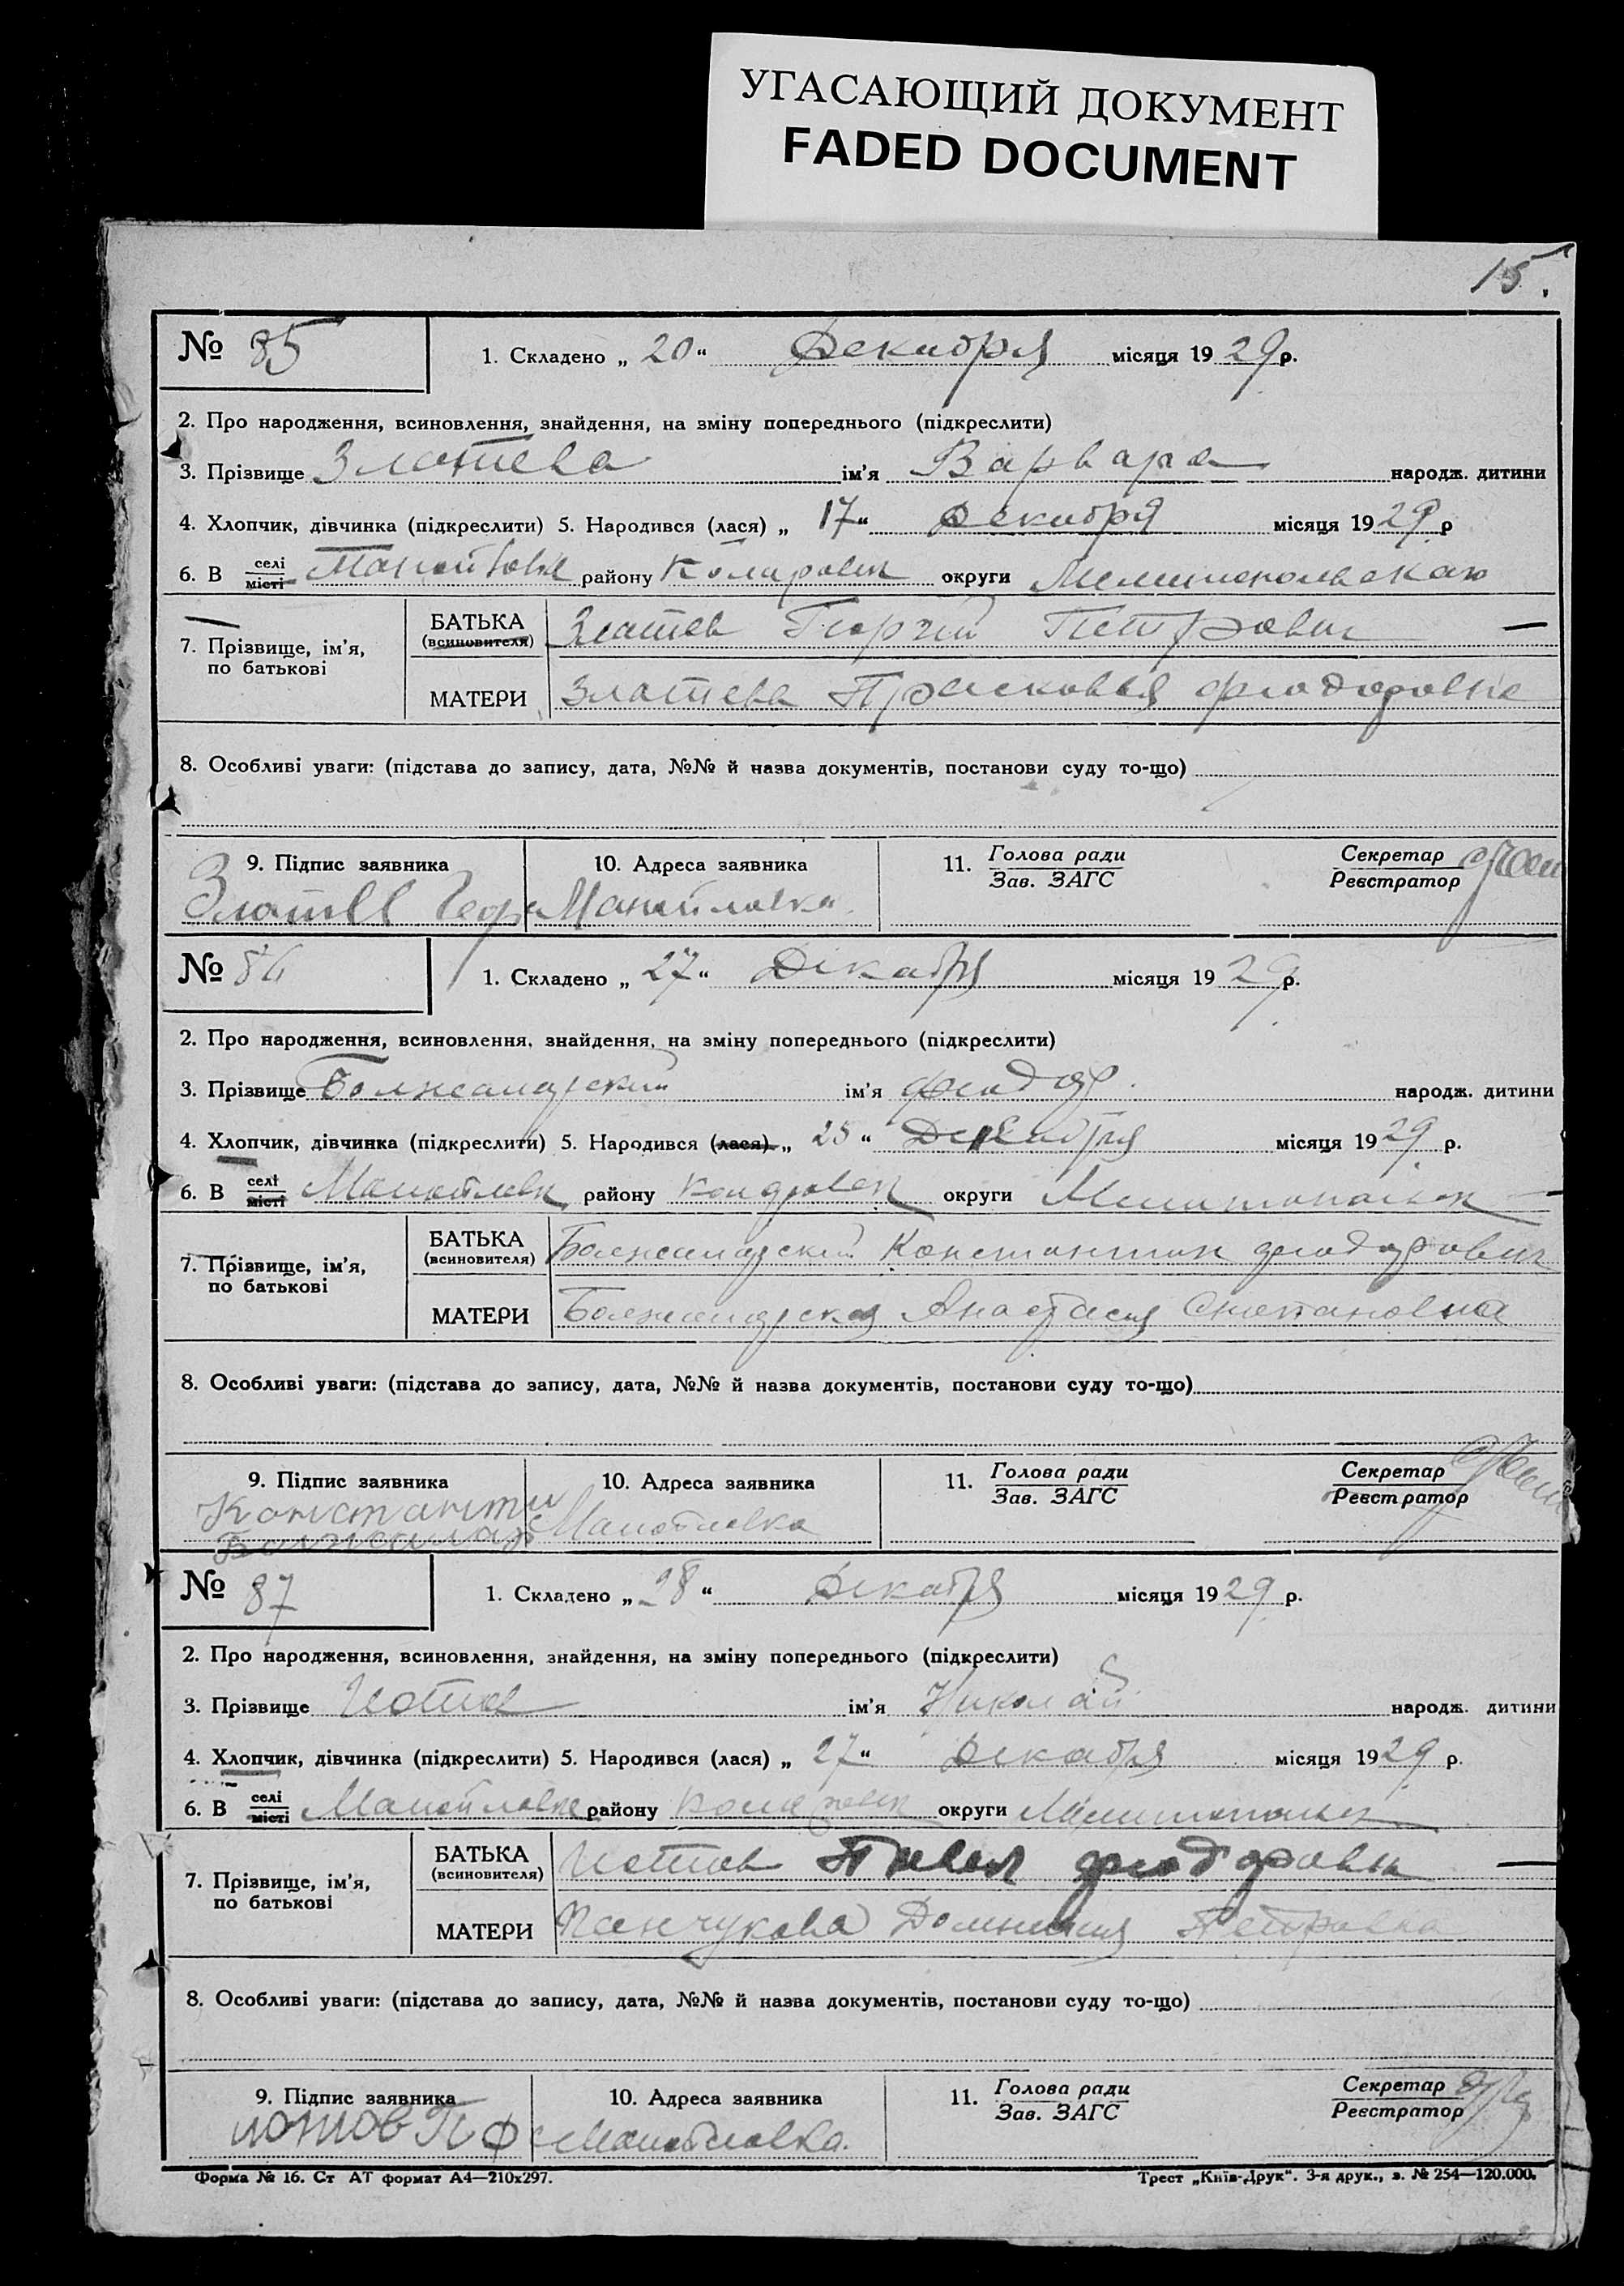 УГАСАЮЩИЙ ДОКУМЕНТ
FADED DOCUMENT
15.
№ 85
1. Складено „ 20 “ Декабря місяця 1929 р.
2. Про народження, всиновлення, знайдення, на зміну попереднього (підкреслити)
3. Прізвище Златева ім’я Варвара народж. дитини
4. Хлопчик, дівчинка (підкреслити) 5. Народився (лася) „ 17 “ Декабря місяця 1929 р
6. В селі місті району Коларовск округи
7. Прізвище, ім’я, по батькові
БАТЬКА (всиновителя) Златев Георгій Петрович
МАТЕРИ Златева Прасковья Фиодоровна
8. Особливі уваги: (підстава до запису, дата, №№ й назва документів, постанови суду то-що)
9. Підпис заявника 10. Адреса заявника 11. Голова ради Зав. ЗАГС Секретар Реєстратор
Златев Геор Манойловка
№ 86
1. Складено „ 27 “ Декабря місяця 1929 р.
2. Про народження, всиновлення, знайдення, на зміну попереднього (підкреслити)
3. Прізвище ім’я Фиодор народж. дитини
4. Хлопчик, дівчинка (підкреслити) 5. Народився (лася) „ 25 “ Декабря місяця 1929 р.
6. В селі місті району округи
7. Прізвище, ім’я, по батькові
БАТЬКА (всиновителя) Константин Фиодорович
МАТЕРИ Анастасия Степановна
8. Особливі уваги: (підстава до запису, дата, №№ й назва документів, постанови суду то-що)
9. Підпис заявника 10. Адреса заявника 11. Голова ради Зав. ЗАГС Секретар Реєстратор
Константи Манойловка
№ 87
1. Складено „ 28 “ Декабря місяця 1929 р.
2. Про народження, всиновлення, знайдення, на зміну попереднього (підкреслити)
3. Прізвище Иотов ім’я Николай народж. дитини
4. Хлопчик, дівчинка (підкреслити) 5. Народився (лася) „ 27 “ Декабря місяця 1929 р.
6. В селі місті Манойловке району округи
7. Прізвище, ім’я, по батькові
БАТЬКА (всиновителя) Иотов Павел Фиодорович
МАТЕРИ Панчукова Домникия Петровна
8. Особливі уваги: (підстава до запису, дата, №№ й назва документів, постанови суду то-що)
9. Підпис заявника 10. Адреса заявника 11. Голова ради Зав. ЗАГС Секретар Реєстратор
иотов П Ф Манойловка.
Форма № 16. Ст АТ формат А4—210х297. Трест „Київ-Друк“. 3-я друк., з. № 254—120.000.